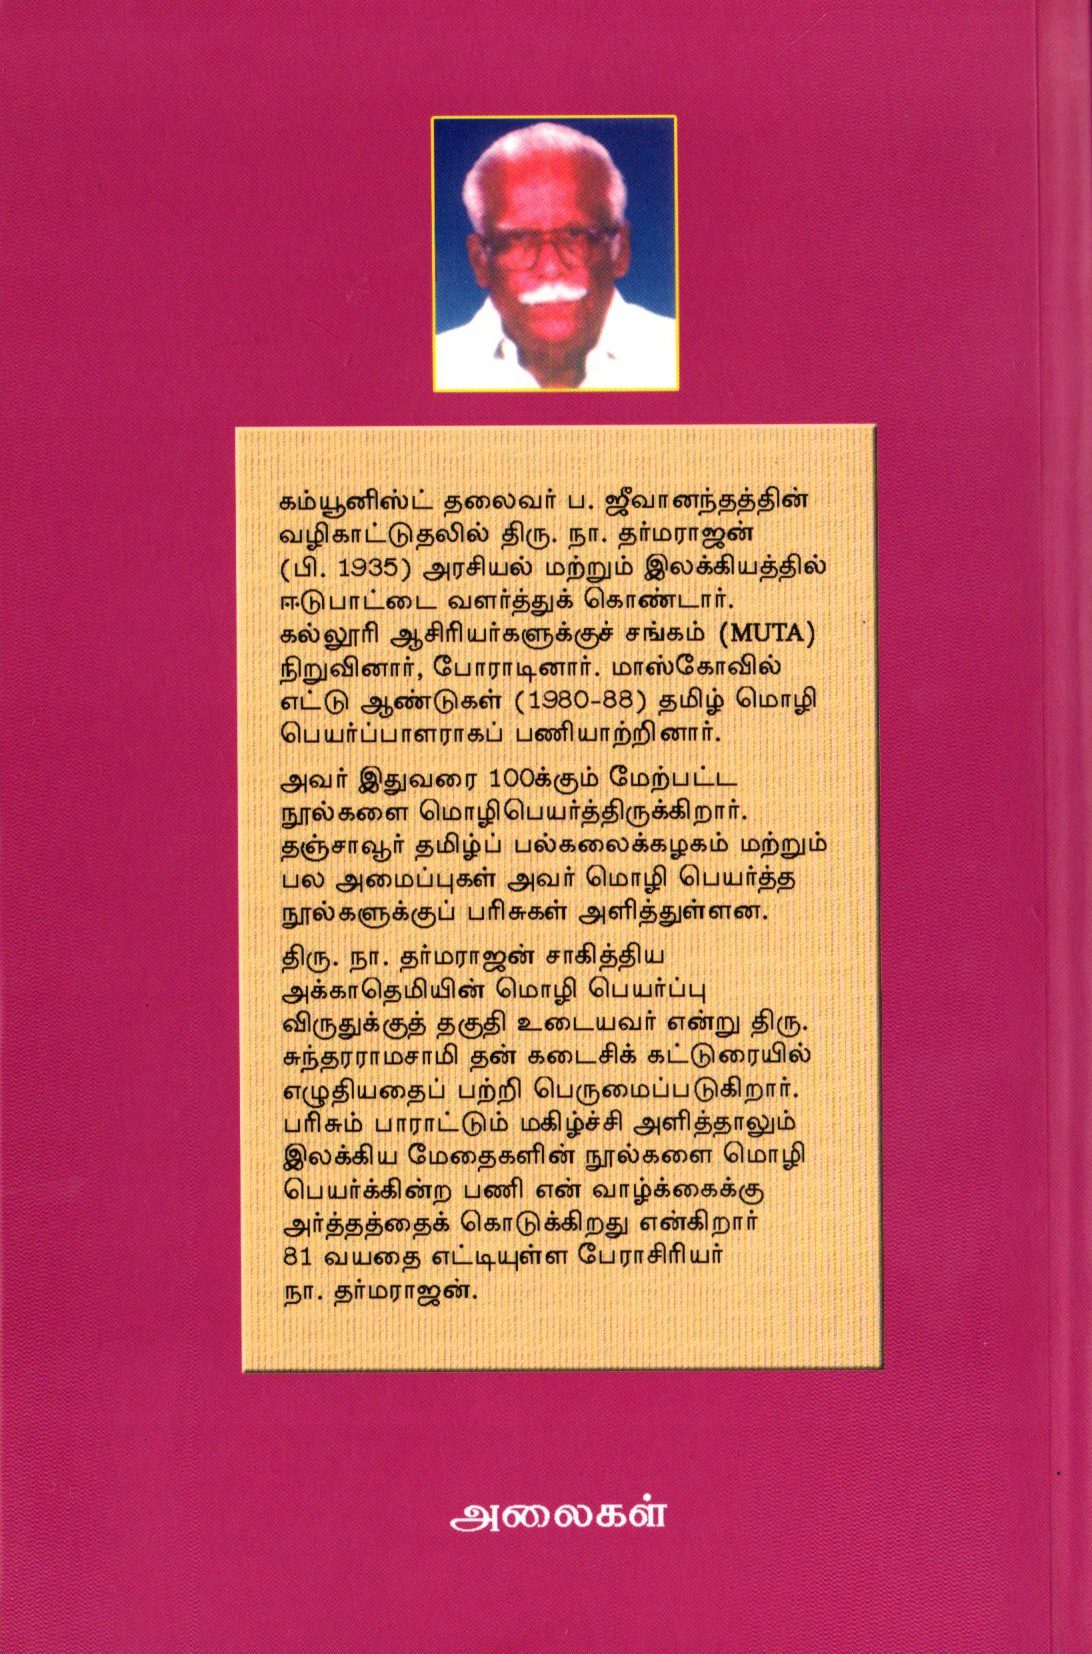 கம்யூனிஸ்ட் தலைவர் ப. ஜீவானந்தத்தின்
வழிகாட்டுதலில் திரு. நா. தர்மராஜன்
(பி. 1935) அரசியல் மற்றும் இலக்கியத்தில்
ஈடுபாட்டை வளர்த்துக் கொண்டார்.
கல்லூரி ஆசிரியர்களுக்குச் சங்கம் (MUTA)
நிறுவினார், போராடினார். மாஸ்கோவில்
எட்டு ஆண்டுகள் (1980-88) தமிழ் மொழி
பெயர்ப்பாளராகப் பணியாற்றினார்.
அவர் இதுவரை 100க்கும் மேற்பட்ட
நூல்களை மொழிபெயர்த்திருக்கிறார்.
தஞ்சாவூர் தமிழ்ப் பல்கலைக்கழகம் மற்றும்
பல அமைப்புகள் அவர் மொழி பெயர்த்த
நூல்களுக்குப் பரிசுகள் அளித்துள்ளன.
திரு. நா. தர்மராஜன் சாகித்திய
அக்காதெமியின் மொழி பெயர்ப்பு
விருதுக்குத் தகுதி உடையவர் என்று திரு.
சுந்தரராமசாமி தன் கடைசிக் கட்டுரையில்
எழுதியதைப் பற்றி பெருமைப்படுகிறார்.
பரிசும் பாராட்டும் மகிழ்ச்சி அளித்தாலும்
இலக்கிய மேதைகளின் நூல்களை மொழி
பெயர்க்கின்ற பணி என் வாழ்க்கைக்கு
அர்த்தத்தைக் கொடுக்கிறது என்கிறார்
81 வயதை எட்டியுள்ள பேராசிரியர்
நா. தர்மராஜன்.
அலைகள்